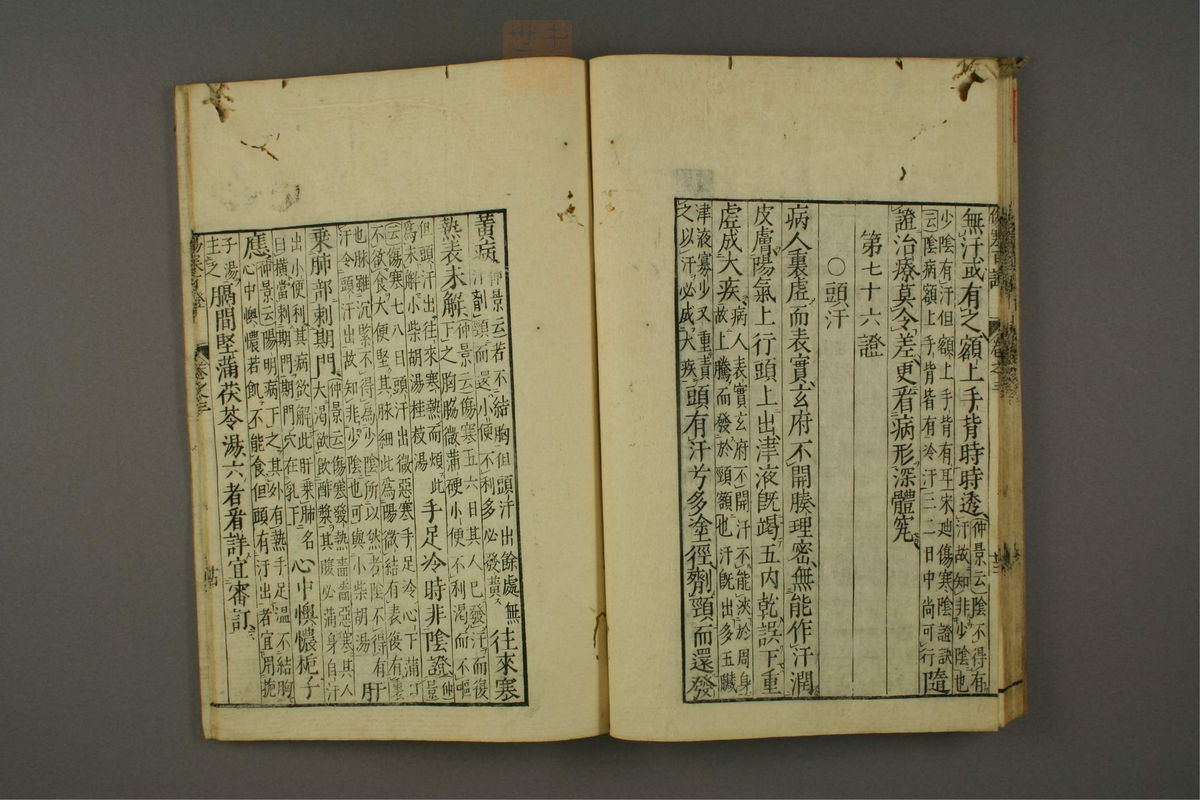 無汗或有之額上手背時時透仲景云陰不得有
汗故知非少陰也
少陰有汗但額上手背有耳宋迪傷寒陰證訣
云陰病額上手背皆有冷汗三二日中尚可行隨
證治療莫令差更看病形深體究
第七十六證
○頭汗
病人裏虛而表實玄府不開腠理密無能作汗潤
皮膚陽氣上行頭上出津液旣竭五内乾誤下重
虛成大疾病人表實玄府不開汗不能浹於周身
故上騰而發於頸額也汗旣出多五臟
津液寡少又重責
之以汗必成大疾頭有汗兮多塗徑劑頸而還發
黃病仲景云若不結胸但頭汗出餘處無
汗劑頸而還小便不利多必發黃往來寒
熱表未解仲景云傷寒五六日其人已發汗而復
下之胸脇微滿硬小便不利渴而不嘔
但頭汗出往來寒熱而煩此
爲未解小柴胡湯桂枝湯手足冷時非陰證仲景
云傷寒七八日頭汗出微惡寒手足冷心下滿口
不欲食大便堅其脉細此爲陽微結有表後有裏
也脉雖沉緊不得為少陰所以然者陰不得有
汗今頭汗出故知非少陰也可與小柴胡湯肝
乘肺部刺期門仲景云傷寒發熱嗇嗇惡寒其人
大渴欲飲酢漿其腹必滿身自汗
出小便利其病欲解此肝乘肺名
曰橫當刺期門期門穴在乳下心中懊憹梔子
應仲景云陽明病下之其外有熱手足溫不結胸
心中懊憹若飢不能食但頭有汗出者宜用梔
子湯
主之膈間堅滿茯苓湯六者看詳宜審訂